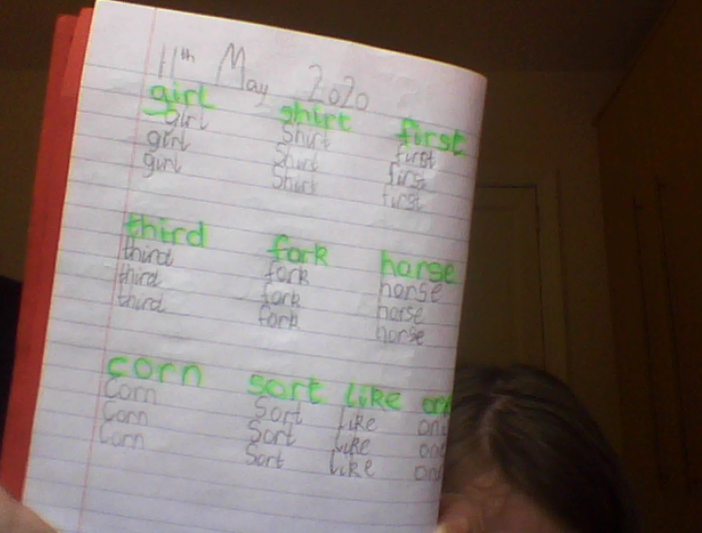 11th May 2020
girl shirt first
girl shirt first
girl shirt first
girl shirt first
third fork horse
third fork horse
third fork horse
third fork horse
corn sort like
corn sort like
corn sort like
corn sort like